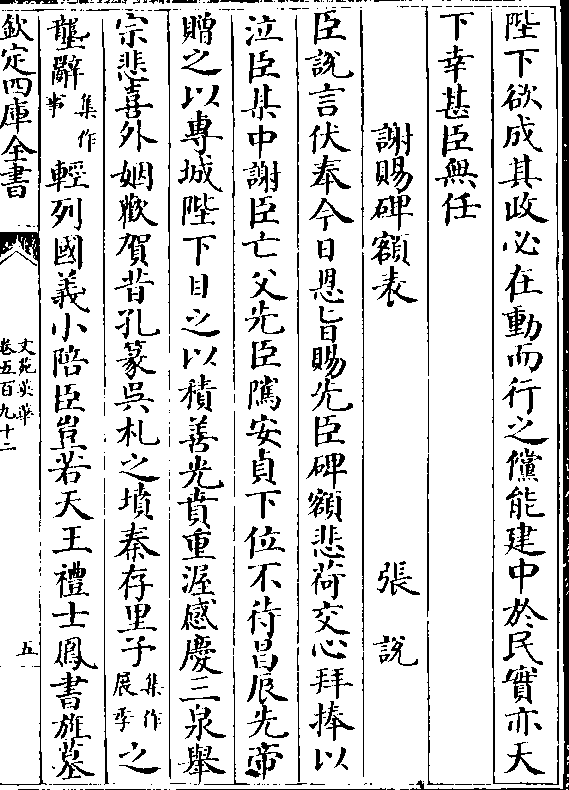 陛下欲成其政必在動而行之儻能建中於民實亦天
下幸甚臣無任
謝賜碑額表 張說
臣說言伏奉今日恩旨賜先臣碑額悲荷交心拜捧以
泣臣某中謝臣亡父先臣隲安貞下位不待昌辰先帝
贈之以專城陛下目之以積善光賁重渥感慶三泉舉
宗悲喜外姻歡賀昔孔篆吳札之墳秦存里子集作展季之
壟辭集作事輕列國義小陪臣豈若天王禮士鳳書旌墓
欽定四庫全書
文苑英華
卷五百九十二
五